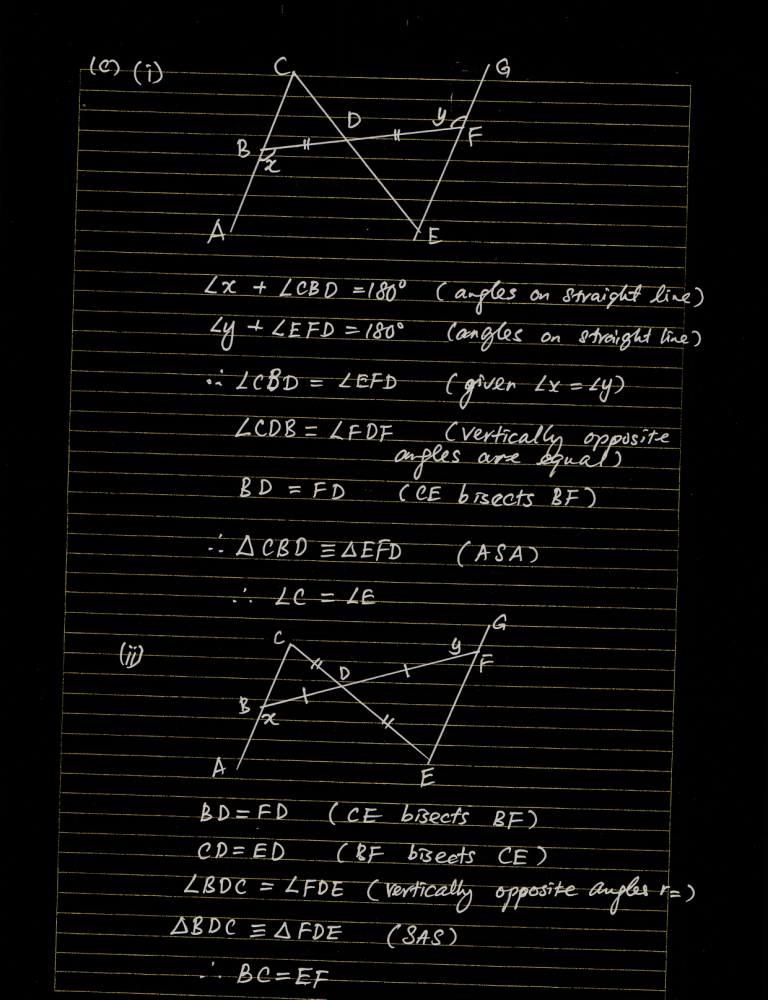 (c) (i)
C
G
D
y
F
B
x
A
E
∠x + ∠CBD = 180° (angles on straight line)
∠y + ∠EFD = 180° (angles on straight line)
∴ ∠CBD = ∠EFD (given ∠x = ∠y)
∠CDB = ∠FDF (vertically opposite
angles are equal)
BD = FD (CE bisects BF)
∴ △CBD ≡ △EFD (ASA)
∴ ∠C = ∠E
(ii)
C
G
y
F
D
B
x
A
E
BD = FD (CE bisects BF)
CD = ED (BF bisects CE)
∠BDC = ∠FDE (vertically opposite angles r =)
△BDC ≡ △FDE (SAS)
∴ BC = EF